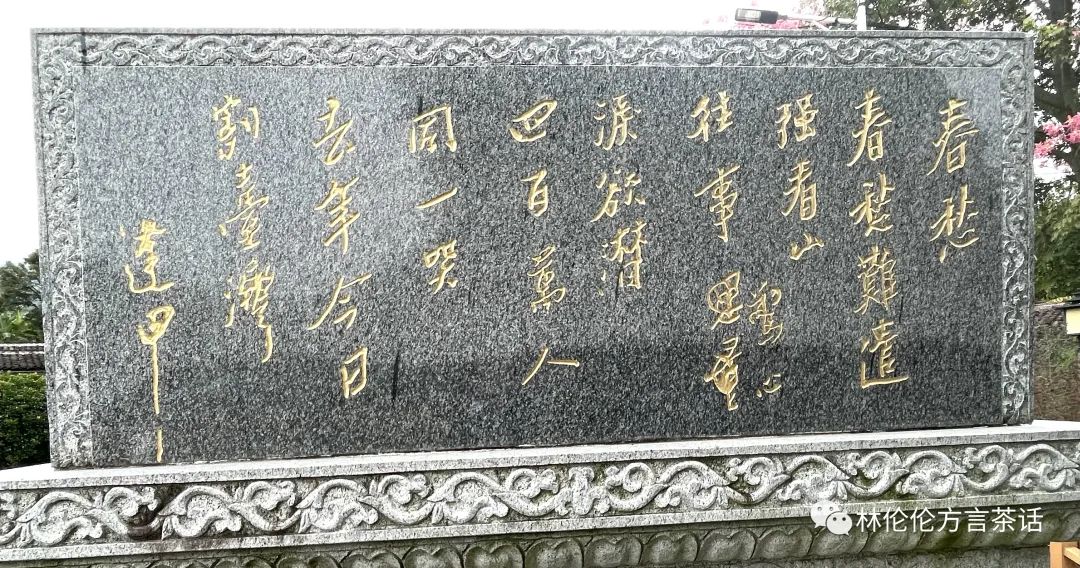 春愁
春愁難遣
强看山
驚心
往事思量
淚欲潸
四百萬人
同一哭
去年今日
割臺灣
逢甲
林伦伦方言茶话